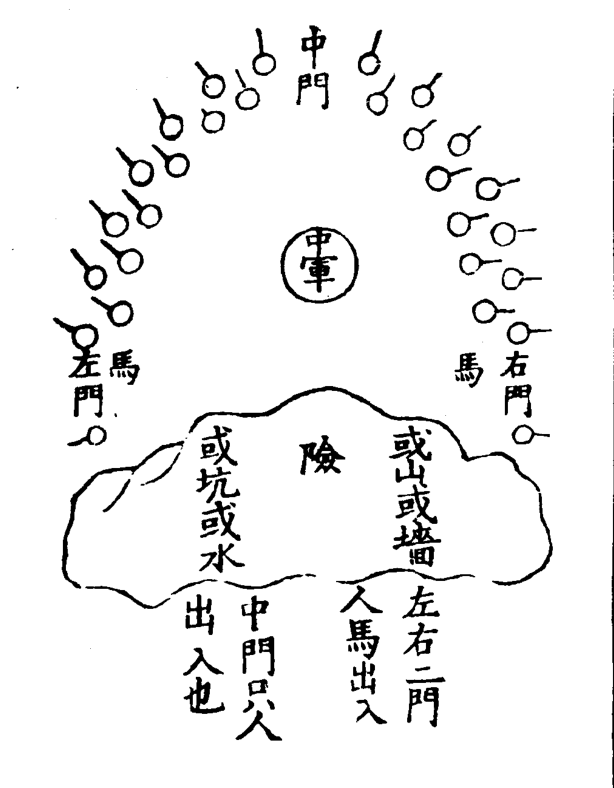 中門
中軍
右門
馬
馬
左門
險
或山或墻
或坑或水
左右二門
人馬出入
中門只人
出入也